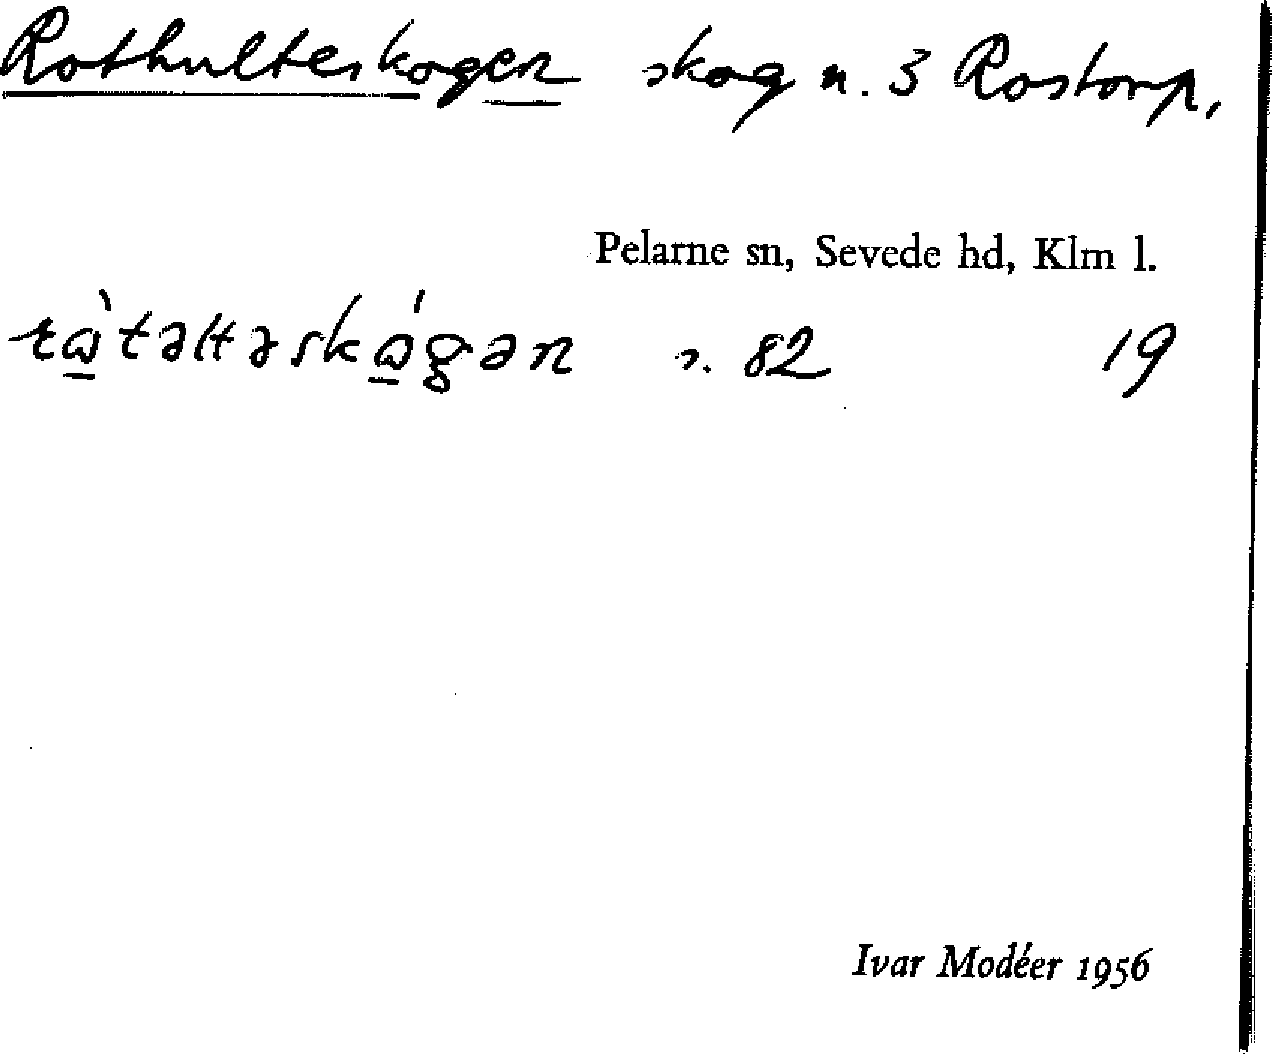 Rothulteskogen skog n. 3 Rostorp,
Pelarne sn, Sevede hd, Klm l.
s. 82 19
Ivar Modéer 1956